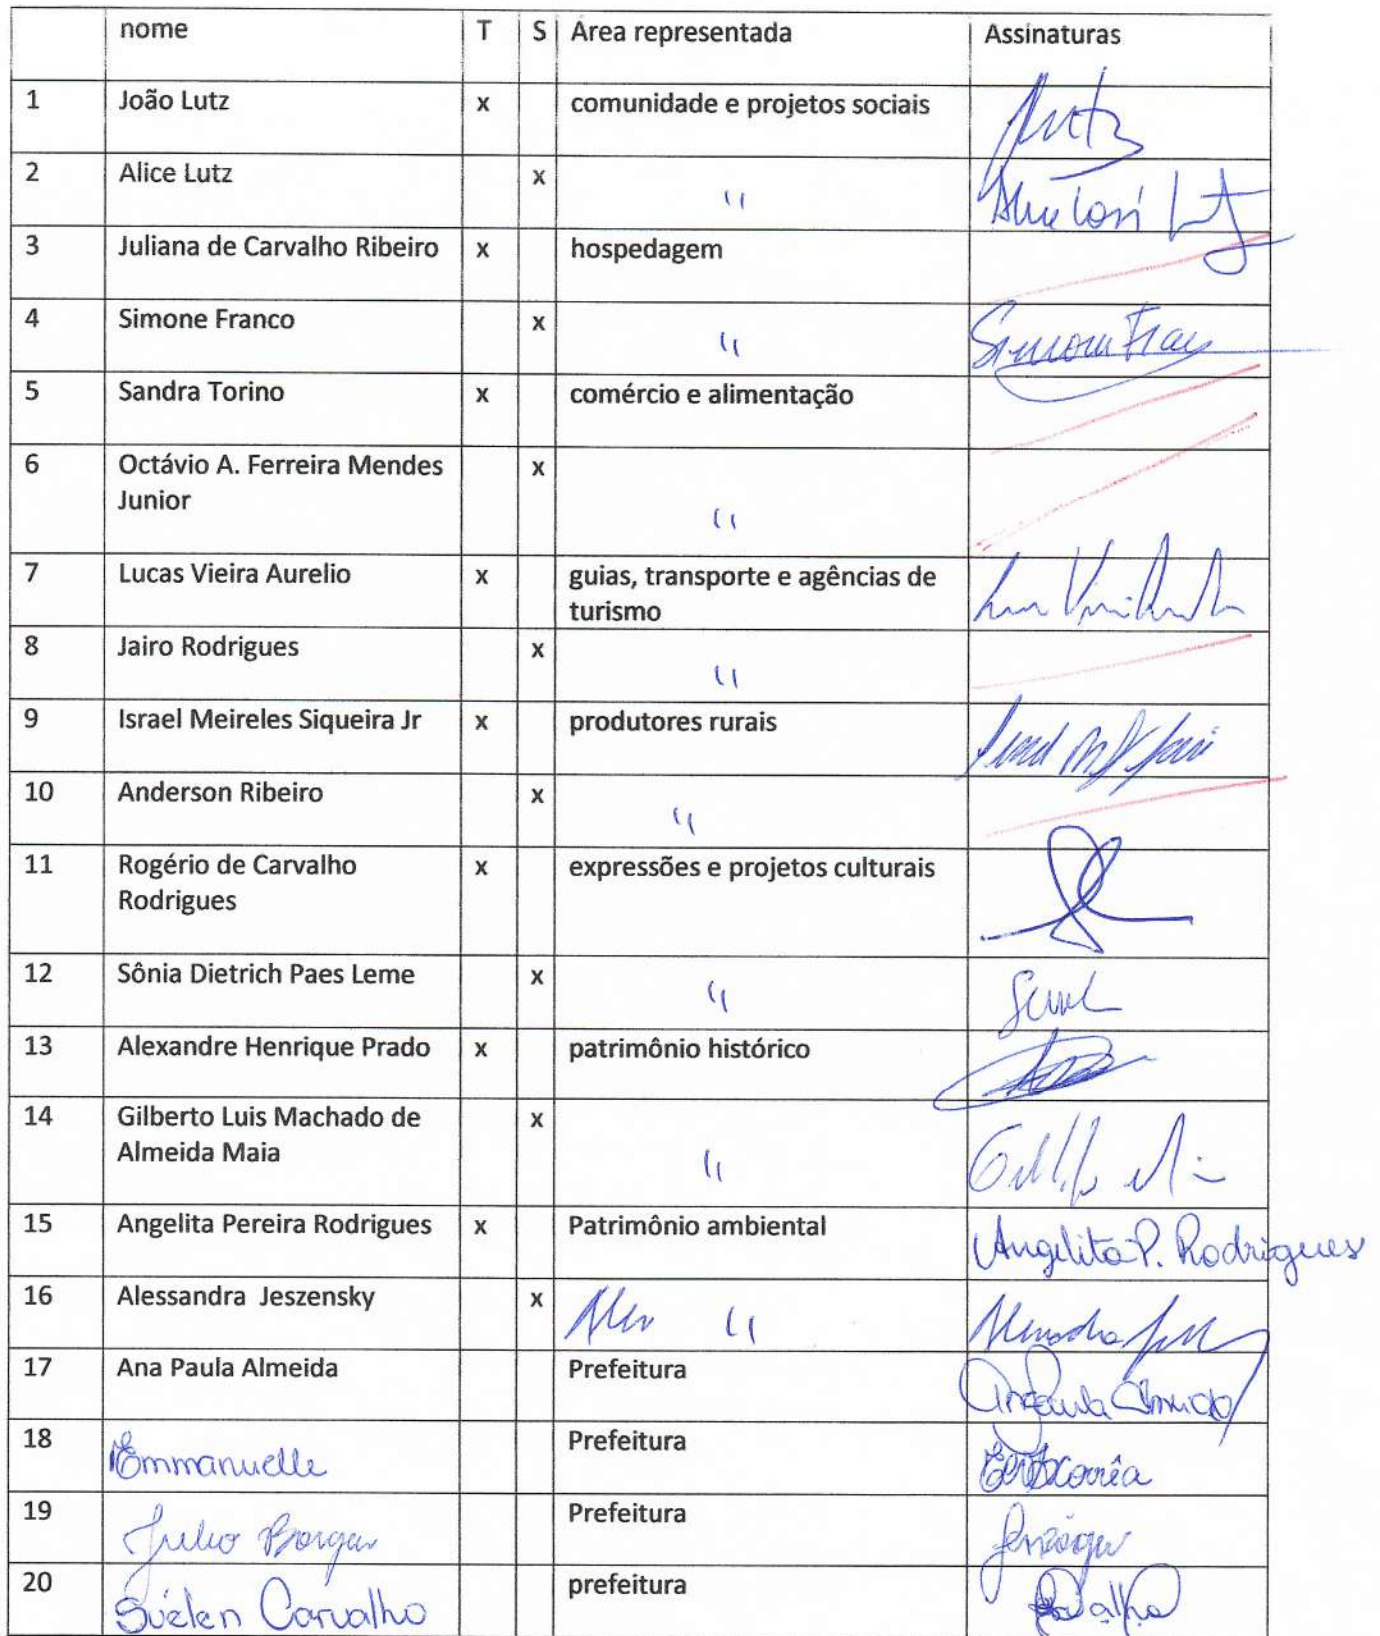 nome T S Área representada Assinaturas
1 João Lutz x comunidade e projetos sociais Lutz
2 Alice Lutz x "
3 Juliana de Carvalho Ribeiro x hospedagem
4 Simone Franco x " Simone
5 Sandra Torino x comércio e alimentação
6 Octávio A. Ferreira Mendes x
Junior "
7 Lucas Vieira Aurelio x guias, transporte e agências de
turismo
8 Jairo Rodrigues x "
9 Israel Meireles Siqueira Jr x produtores rurais
10 Anderson Ribeiro x "
11 Rogério de Carvalho x expressões e projetos culturais
Rodrigues
12 Sônia Dietrich Paes Leme x "
13 Alexandre Henrique Prado x patrimônio histórico
14 Gilberto Luis Machado de x
Almeida Maia "
15 Angelita Pereira Rodrigues x Patrimônio ambiental Angelita P. Rodrigues
16 Alessandra Jeszensky x "
17 Ana Paula Almeida Prefeitura Ana Paula Almeida
18 Emmanuelle Prefeitura Corrêa
19 Julio Borges Prefeitura
20 Suelen Carvalho prefeitura